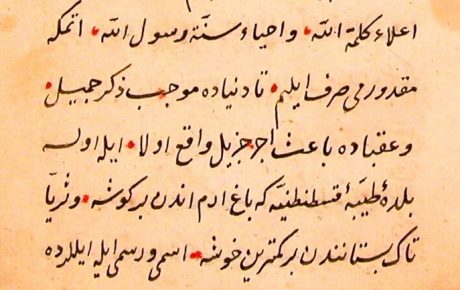 اعلاء كلمة الله واحياء سنة وسول الله اتمكه
مقدورمى صرف ايلم تا دنياده موجب ذكر جميل
وعقباده باعث اجر جزيل واقع اولا ايله اولسه
بلدهٔ طيبهٔ قسطنطنيه كه باغ ارم اندن بر كوشه وثريا
تاك بستانندن بر كمترين خوشه اسمى ورسمى ايله ايللرده